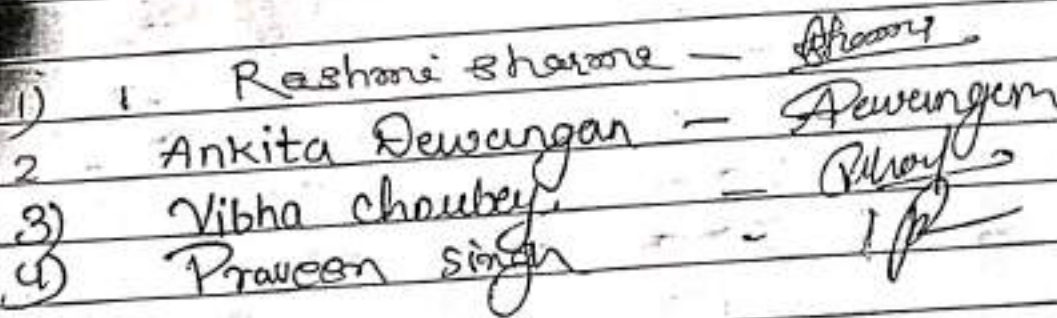 1) 1. Rashmi sharma -
2 - Ankita Dewangan - ADewangan
3) Vibha choubey. -
4) Praveen singh -